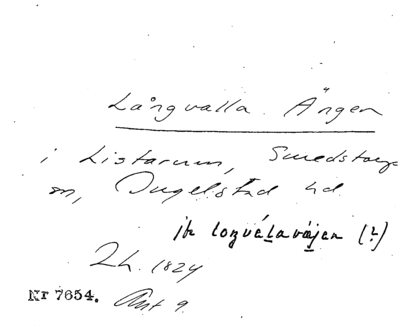 Långvalla Ängen
i Listarum, Smedstorps
sn, Ingelstad hd
jfr lozvélavájen (?)
Lh. 1824
Nr 7654. Akt 9.